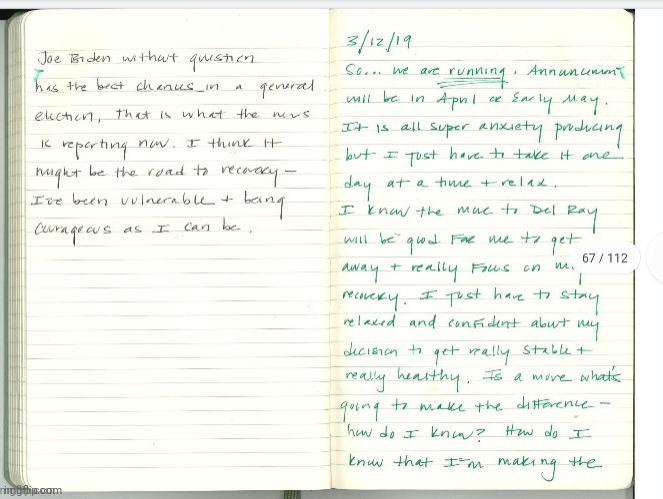 Joe Biden without question
has the best chances in a general
election, That is what the news
is reporting now. I think it
might be the road to recovery —
I've been vulnerable + being
courageous as I can be.
3/12/19
So... we are running. Announcement
will be in April or Early May.
It is all super anxiety producing
but I just have to take it one
day at a time + relax.
I know the move to Del Ray
will be good For me to get
away + really Focus on
recovery. I just have to stay
relaxed and confident about my
decision to get really stable +
really healthy. Is a move what's
going to make the difference —
how do I know? How do I
know that I'm making the
67 / 112
imgflip.com